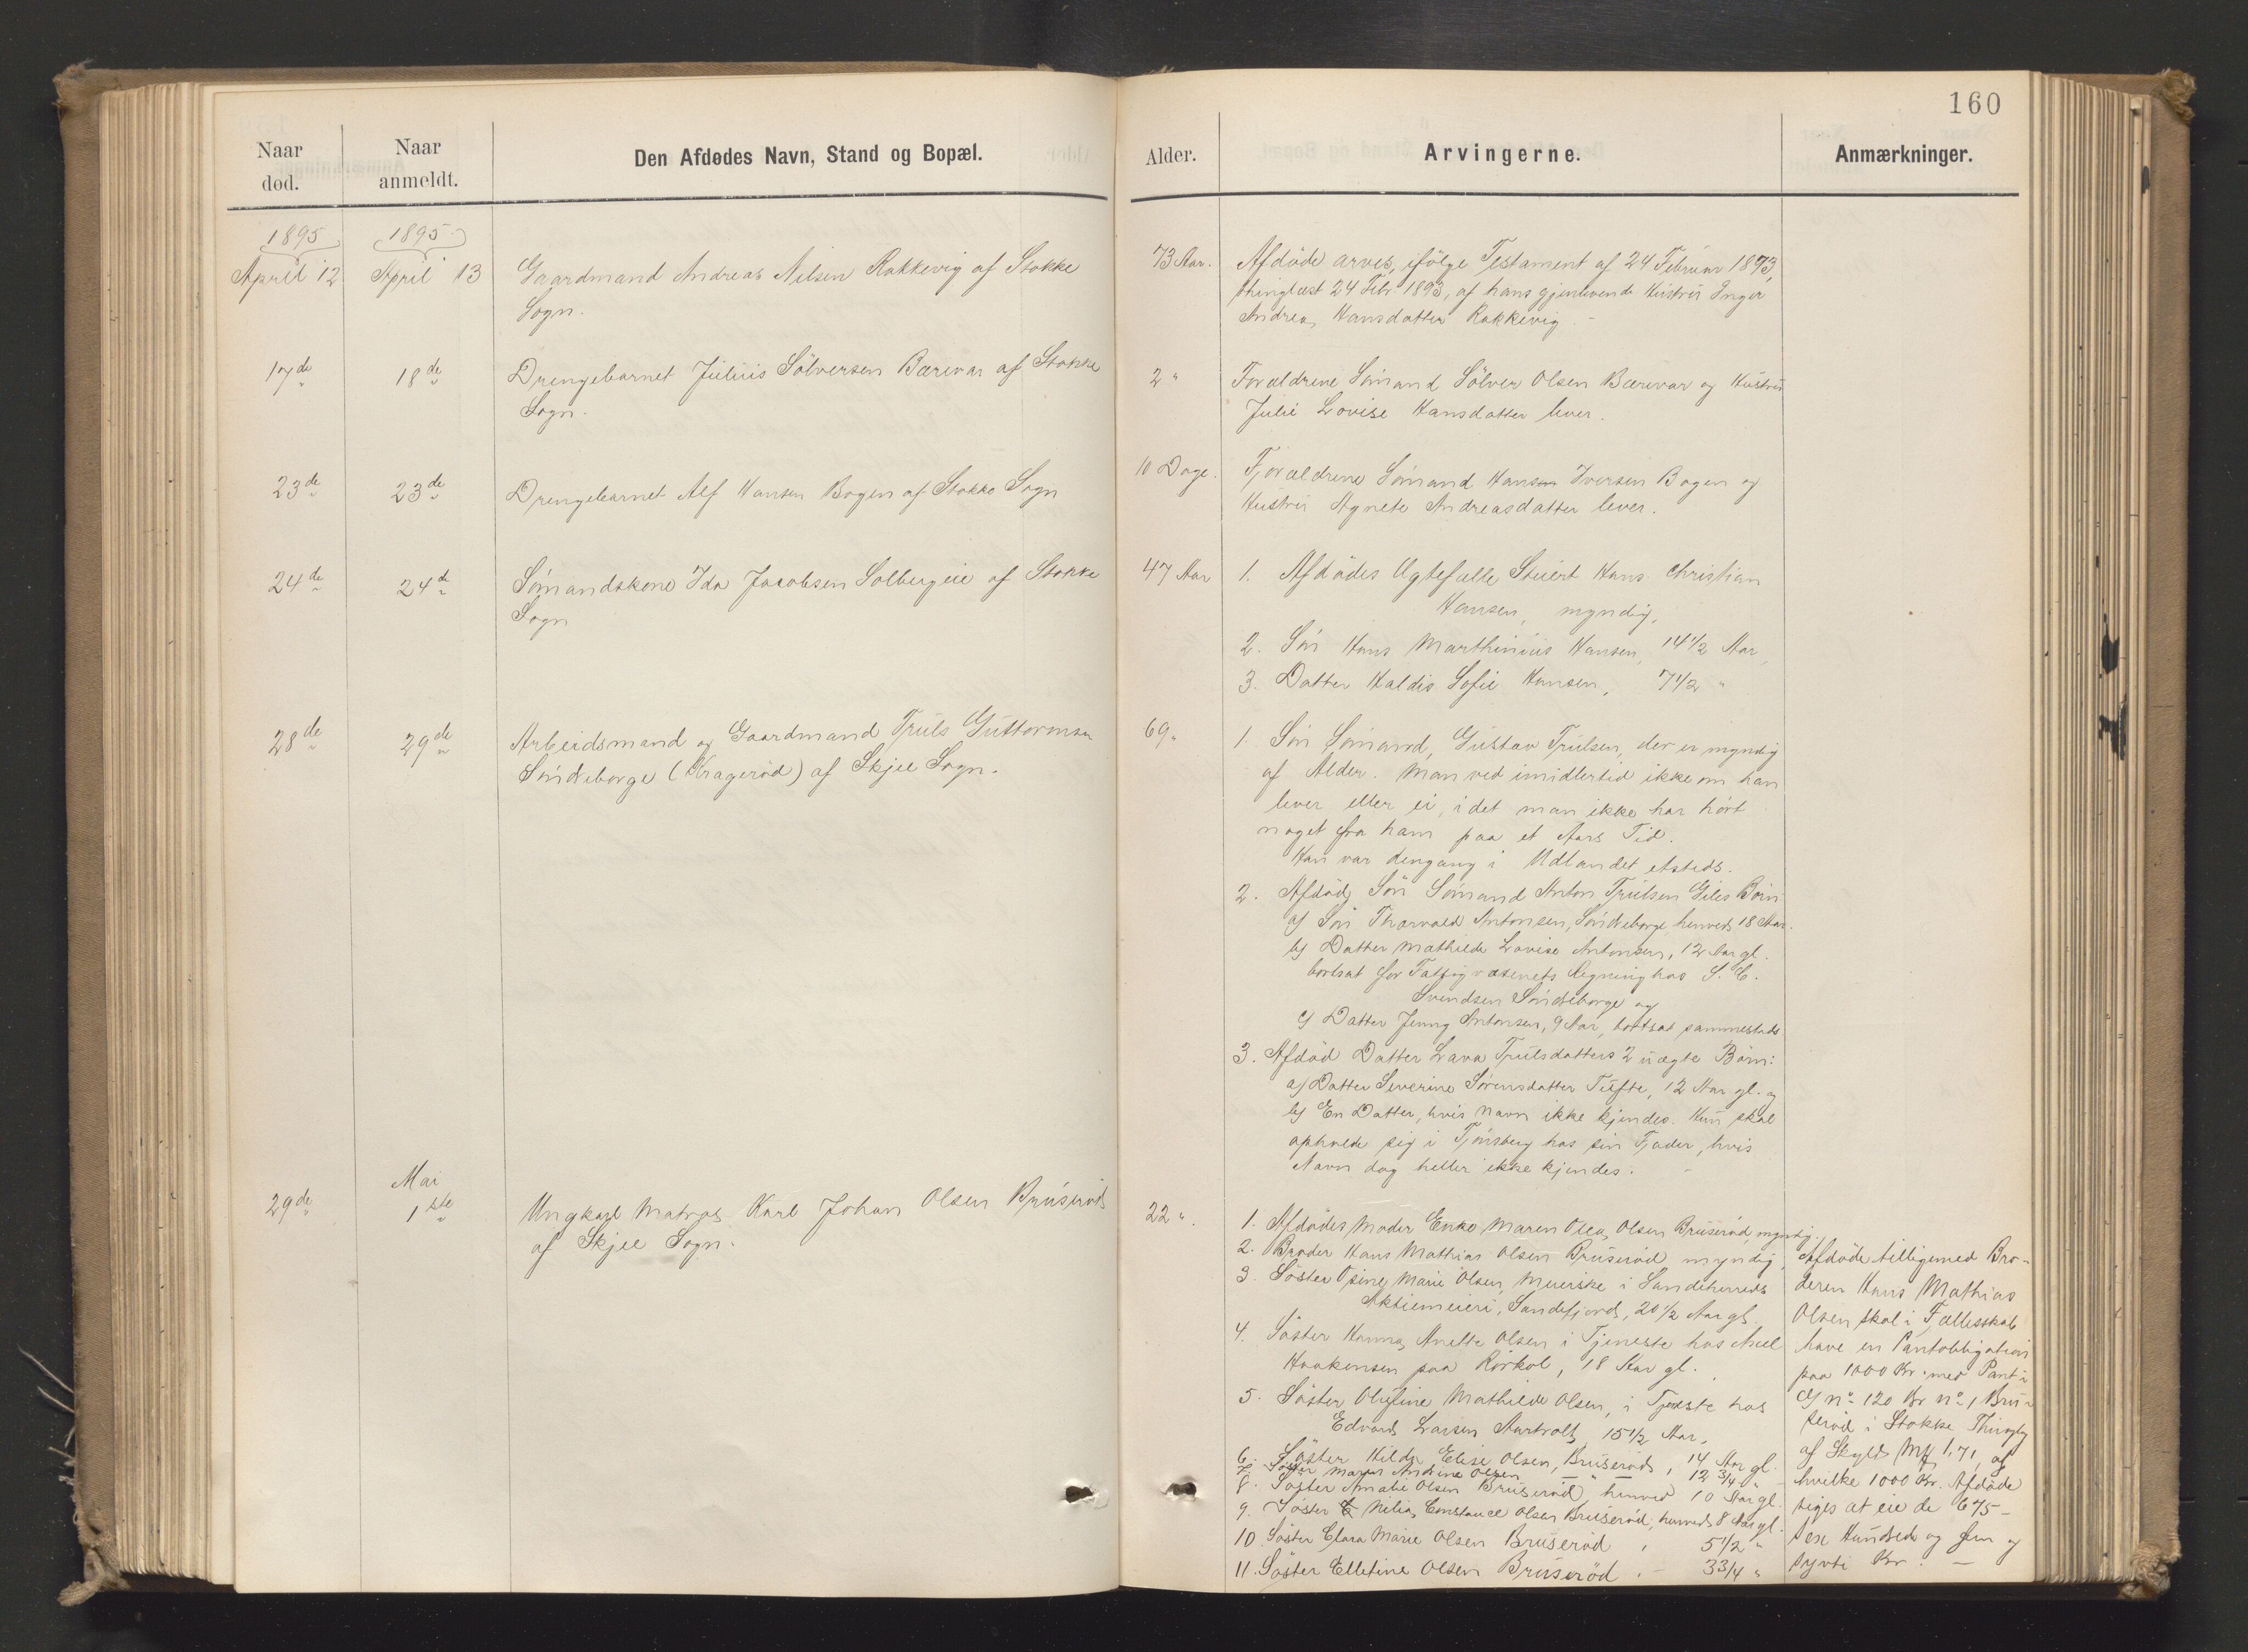 160
Naar død.
Naar anmeldt.
Den Afdødes Navn, Stand og Bopæl.
Alder.
Arvingerne.
Anmærkninger.
1895
1895
April 12
April 13
Gaardmand Andreas Nilsen Rakkevig af Stokke
Sogn.
73 Aar.
Afdøde arves, ifölge Testament af 24 Februar 1893,
thinglæst 24 Febr 1893, af hans gjenlevende Hustru Inger
Andrea Hansdatter Rakkevig.
17de
18de
Drengebarnet Julius Sölversen Bærevar af Stokke
Sogn.
2 "
Forældrene Sömand Sölver Olsen Bærevar og Hustru
Julie Lovise Hansdatter lever.
23de
23de
Drengebarnet Alf Hansen Bogen af Stokke Sogn
10 Dage.
Forældrene Sömand Hans Iversen Bogen og
Hustru Agnete Andreasdatter lever.
24de
24de
Sömandskone Ida Jacobsen Solbergeie af Stokke
Sogn
47 Aar
1. Afdödes Ægtefælle Stuert Hans Christian
Hansen, myndig,
2. Sön Hans Marthinius Hansen, 14 1/2 Aar,
3. Datter Haldis Sofie Hansen, 7 1/2 "
28de
29de
Arbeidsmand og Gaardmand Truls Guttormsen
Söndreborge (Krageröd) af Skjee Sogn.
69 "
1. Sön Sömand, Gustav Trulsen, der er myndig
af Alder. Man ved imidlertid ikke om han
lever eller ei, idet man ikke har hört
noget fra ham paa et Aars Tid.
Han var dengang i Udlandet etsteds.
2. Afdöd Sön Sömand Anton Trulsen Giles Börn
a) Sön Thorvald Antonsen, Söndreborge, henved 18 Aar.
b) Datter Mathilde Lovise Antonsen, 12 Aar gl.
bortsat for Fattigvæsenets Regning hos S. C.
Svendsen Söndreborge og
c) Datter Jenny Antonsen, 9 Aar, bortsat sammesteds
3. Afdöd Datter Lava Trulsdatters 2 uægte Börn:
a) Datter Severine Sörensdatter Tufte, 12 Aar gl. og
b) En Datter, hvis Navn ikke kjendes. Hun skal
opholde sig i Tönsberg hos sin Fader, hvis
Navn dog heller ikke kjendes. –
29de
Mai
1ste
Ungkarl Matros Karl Johan Olsen Bruseröd
af Skjee Sogn.
22 ".
1. Afdödes Moder Enke Maren Olea Olsen Bruseröd myndig.
2. Broder Hans Mathias Olsen Bruseröd myndig,
3. Söster Marie Olsen, Meierske i Sandeherreds
Aktiemeieri, Sandefjord, 20 1/2 Aar gl.
4. Söster Hanna Anette Olsen i Tjeneste hos
Haakensen paa Rörkol, 18 Aar gl.
5. Söster Olufine Mathilde Olsen, i Tjeneste hos
Edvard Larsen 15 1/2 Aar.
6. Söster Hilda Elise Olsen, Bruseröd, 14 Aar gl.
7. Söster Maren Andrine Olsen — " — 12 3/4 "
8. Söster Amalie Olsen Bruseröd henved 10 Aar gl.
9. Söster Nelia Constance Olsen Bruseröd, henved 8 Aar gl.
10. Söster Clara Marie Olsen Bruseröd, 5 1/2 "
11. Söster Elletine Olsen Bruseröd. – 3 3/4 "
Afdöde tilligemed Bro-
deren Hans Mathias
Olsen skal i Fællesskab
have en Pantobligation
paa 1000 Kr. med Pant i
G No 120 Br No 1 Bru-
seröd i Stokke Thinglag
af Skyld Mk 1,71, af
hvilke 1000 Kr. Afdöde
siges at eie de 675 –
Sex Hundrede og fem og
sytti Kr. –